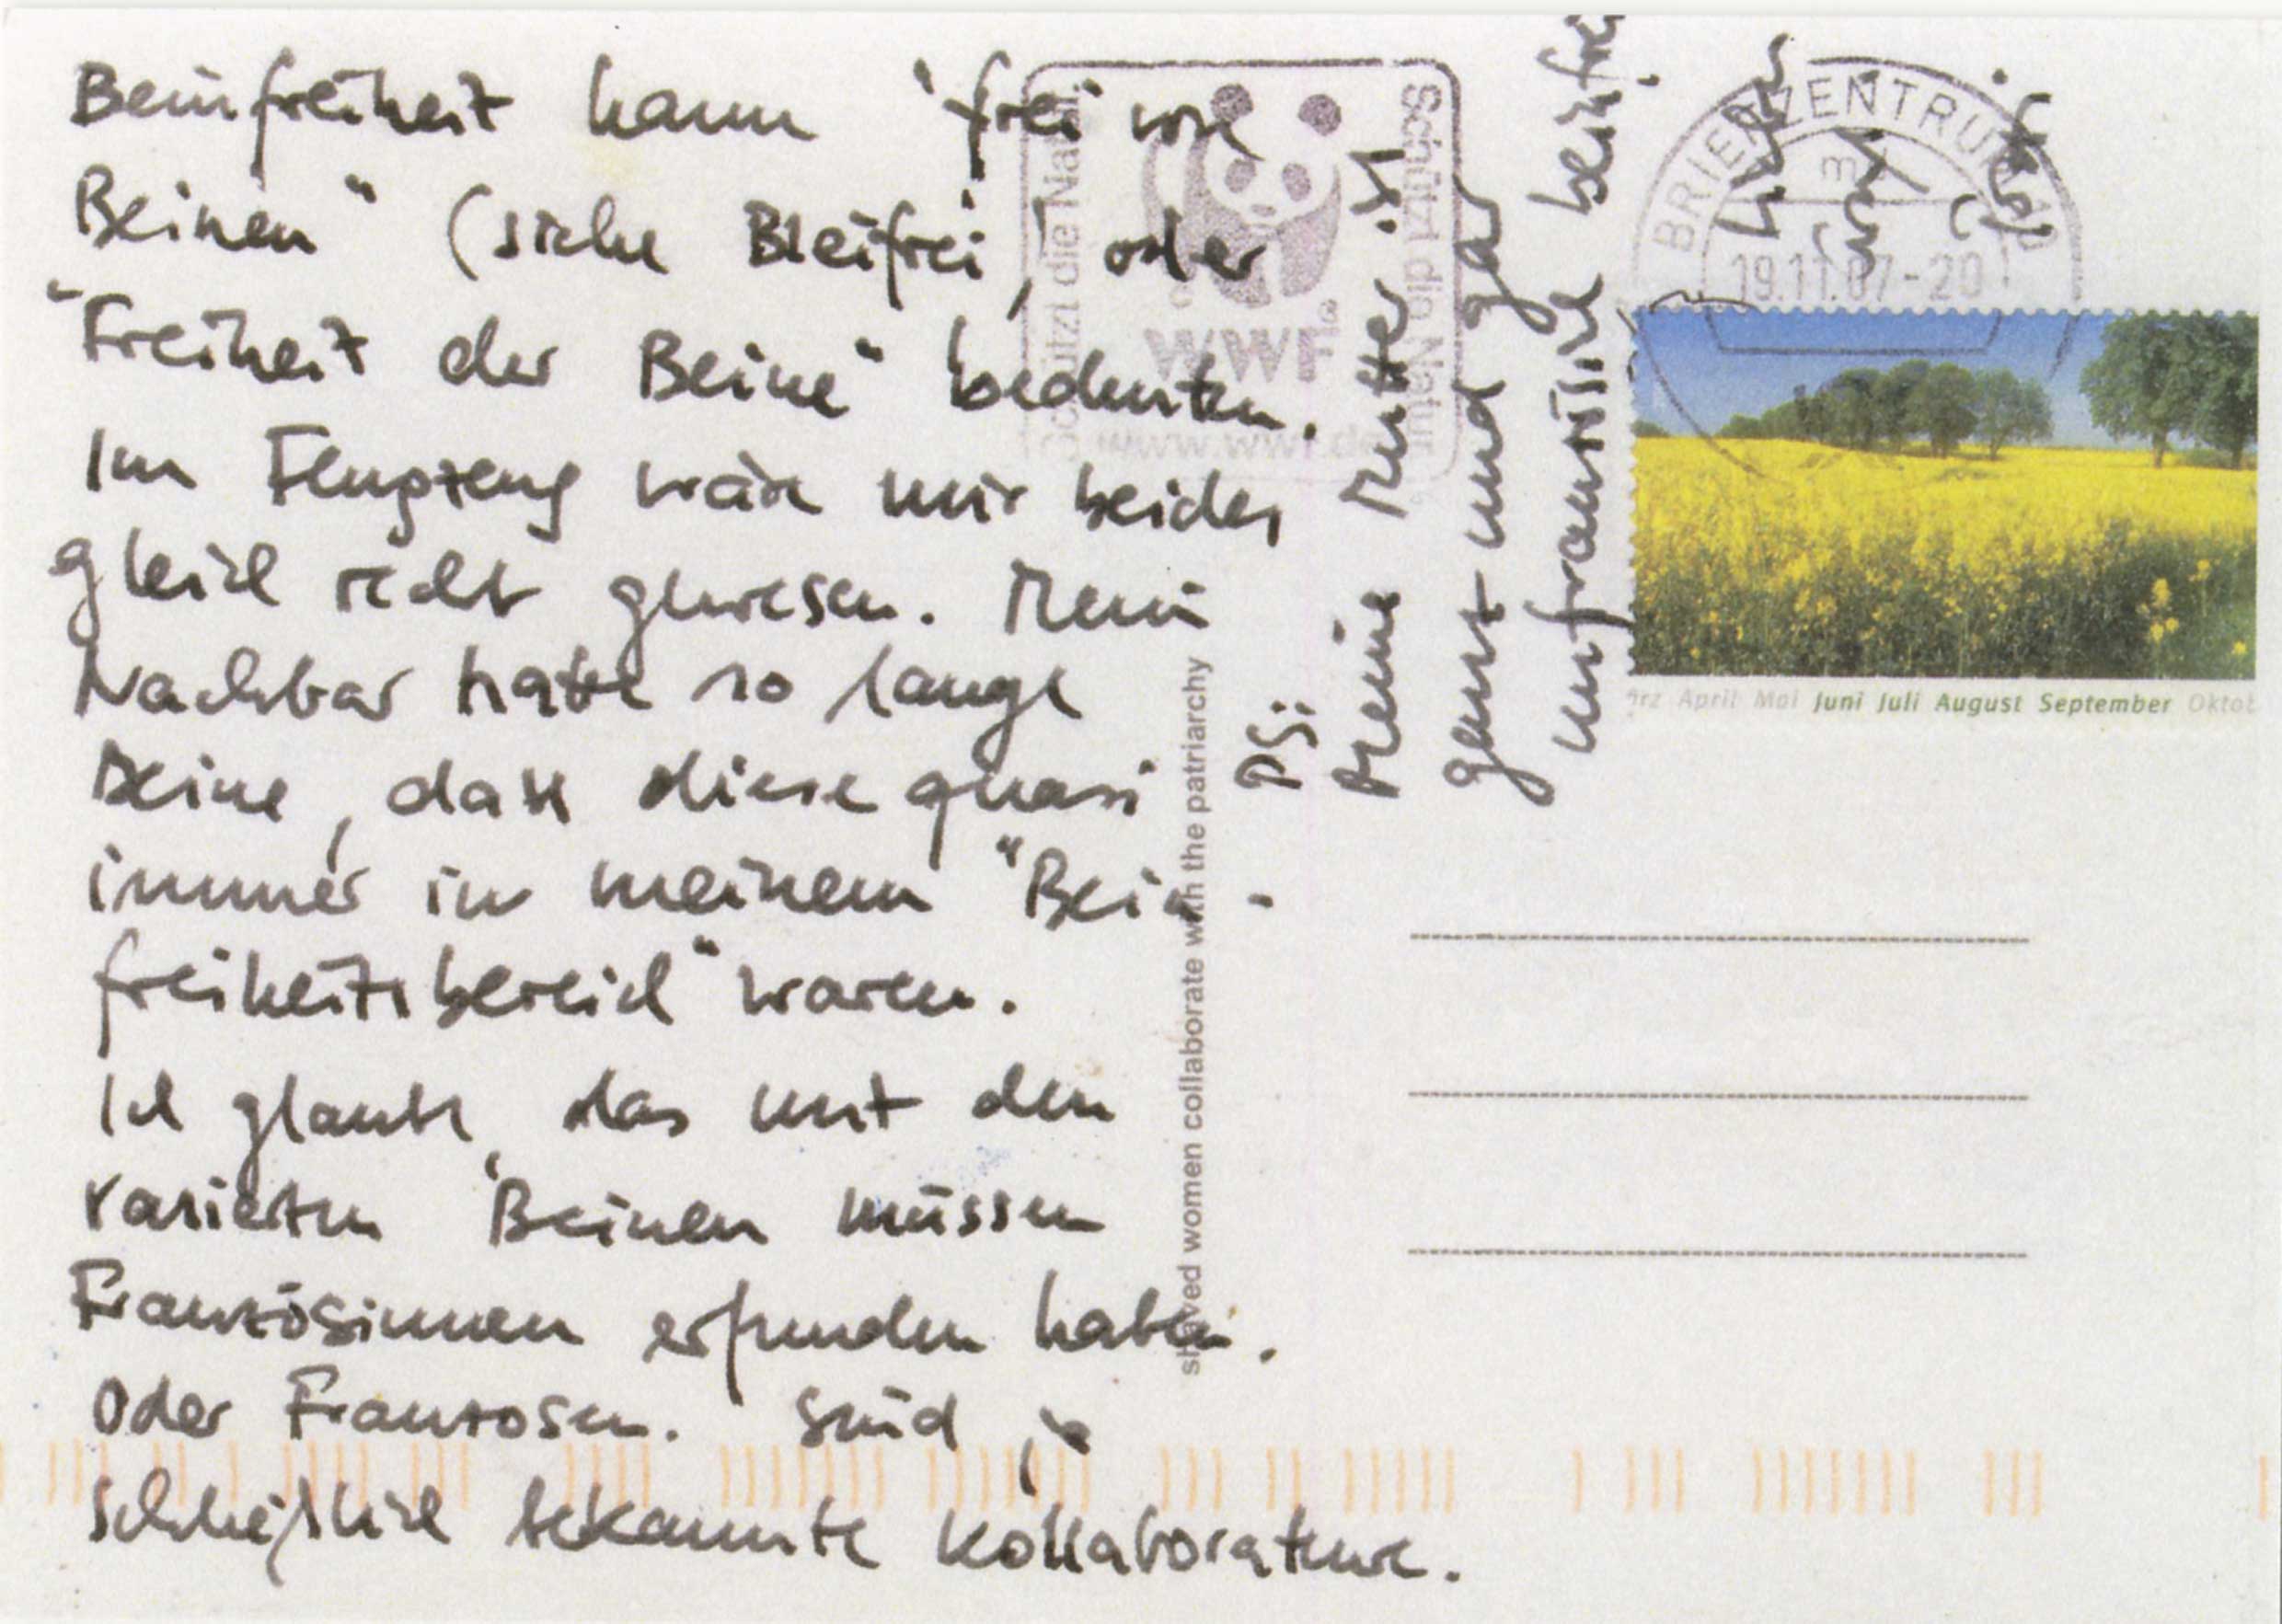 Beinfreiheit kann "frei von
Beinen" (siehe Bleifrei) oder
"Freiheit der Beine" bedeuten.
Im Flugzeug wäre mir beides
gleich recht gewesen. Mein
Nachbar hatte so lange
Beine, dass diese quasi
immer in meinem "Bein-
freiheitsbereich" waren.
Ich glaube, das mit den
rasierten Beinen müssen
Französinnen erfunden haben.
Oder Franzosen. Sind ja
schließlich bekannte Kollaborateure.
shaved women collaborate with the patriarchy
PS:
Meine Mutter ist
ganz und gar
unfranzösisch
Schützt die Natur
Schützt die Natur
WWF®
www.wwf.de
BRIEFZENTRUM
19.11.07-20
ärz April Mai Juni Juli August September Oktob